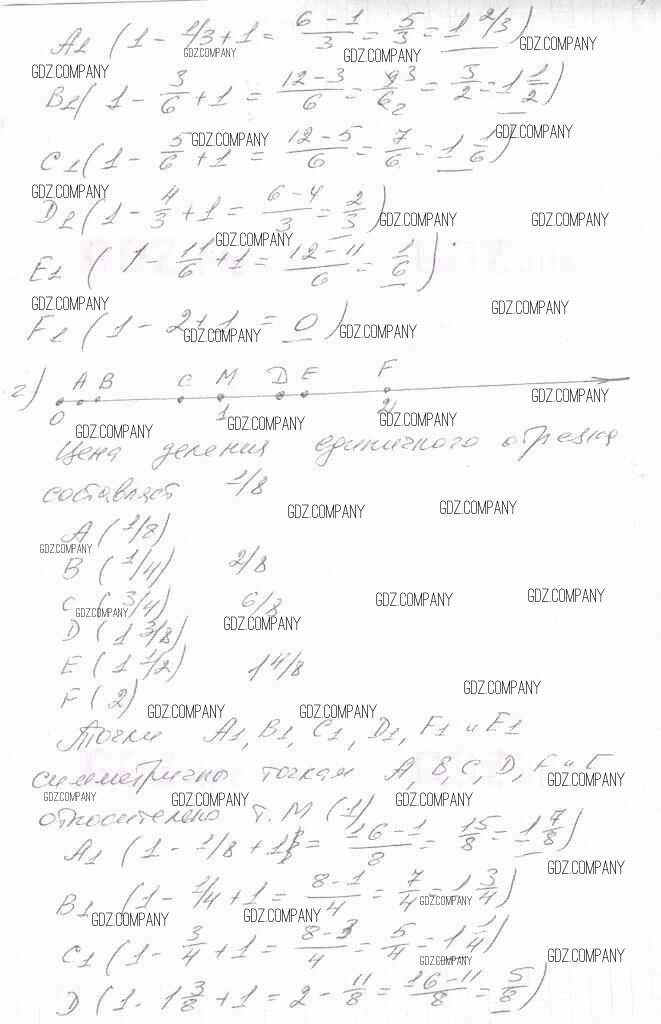 A1 (1 - 1/3 + 1 = 6-1/3 = 5/3 = 1 2/3)
GDZ.COMPANY
GDZ.COMPANY GDZ.COMPANY
GDZ.COMPANY
B1 (1 - 3/6 + 1 = 12-3/6 = 9 3/6 2 = 3/2 = 1 1/2)
GDZ.COMPANY GDZ.COMPANY
C1 (1 - 5/6 + 1 = 12-5/6 = 7/6 = 1 1/6)
GDZ.COMPANY
D1 (1 - 4/3 + 1 = 6-4/3 = 2/3)
GDZ.COMPANY GDZ.COMPANY
GDZ.COMPANY
E1 (1 - 11/6 + 1 = 12-11/6 = 1/6)
GDZ.COMPANY GDZ.COMPANY
F1 (1 - 2 + 1 = 0)
GDZ.COMPANY GDZ.COMPANY
г) A B C M D E F
0 1 2
GDZ.COMPANY
GDZ.COMPANY GDZ.COMPANY GDZ.COMPANY
Цена деления единичного отрезка
составляет 1/8
GDZ.COMPANY GDZ.COMPANY
A (1/8)
GDZ.COMPANY
B (1/4) 2/8
C (3/4) 6/8
GDZ.COMPANY GDZ.COMPANY GDZ.COMPANY
D (1 3/8)
GDZ.COMPANY
E (1 1/2) 1 4/8
F (2)
GDZ.COMPANY
GDZ.COMPANY GDZ.COMPANY
Точки A1, B1, C1, D1, F1 и E1
симметричны точкам A, B, C, D, F и E
GDZ.COMPANY
GDZ.COMPANY GDZ.COMPANY GDZ.COMPANY
относительно т. M (1)
A1 (1 - 1/8 + 1 = 16-1/8 = 15/8 = 1 7/8)
GDZ.COMPANY
B1 (1 - 1/4 + 1 = 8-1/4 = 7/4 = 1 3/4)
GDZ.COMPANY GDZ.COMPANY GDZ.COMPANY
C1 (1 - 3/4 + 1 = 8-3/4 = 5/4 = 1 1/4)
GDZ.COMPANY GDZ.COMPANY
D (1 - 1 3/8 + 1 = 2 - 11/8 = 16-11/8 = 5/8)